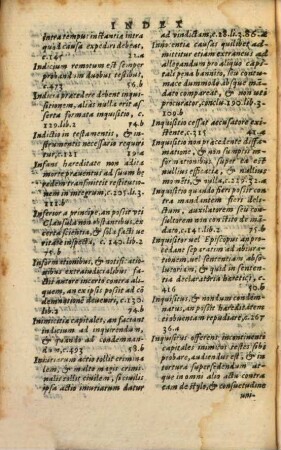 INDEX
Intra tempus instantia intra
quod causa expediri debeat,
c.145 21.a
Indicium remotum est semper
probandum duobus testibus,
c.423 56.b
Indicia præcedere debent inquisitionem,
sitionem, alias nulla erit as
serta formata inquisitio, c.
130.lib.2 74.b
Indictio in testamentis, &
instrumentis necessario requiritur,
c.121 19.a
Infans hereditate non adita
moriens
bedem transmittit restitutionem
in integrum, c.205.li.3.
111.b
Inferior a principe, an possit
Clausula
certa scientia, & sola facti ve
ritate inspecta, c.140.lib.2
75.b
Informationibus, &
bus extraiudicialibus fa
ctis autore incerto contra aliquem,
an ex ipsis possit ad condemnationem
deveniri, c.130.
lib.2 74.b
Inimicitia capitales, an faciant
indicium ad inquirendum,
& quando ad condemnandum,
c.493 58.b
Iniuriarum actio tollit crimina
lem, & multo magis crimi
nalis tollit civilem, si civilis
ipsa actio iniuriarum datur
ad vindictam, c.28.li.3. 86.a
Innocentia causa videlicet admittitur
etiam extraneus ad
allegandum pro aliquo capitali
pena bannito, seu contumace
dummodo absque mandato
compareat, & non uti
procurator, conclu.190.lib.3.
110.b
Inquisitio cessat accusatore existente,
c.315 42.a
Inquisitio non præcedente diffamatione,
& non sumptis in
formationibus super ea est
nullius efficacia, & nullius
momenti, & nulla, c.257.32.a
Inquisitio quando fieri possit contra
mandantem fieri delictum,
auxiliatorem seu consultorem
non citato,
c.140.lib.2
75.b
Inquisitor vel Episcopus an possit
separatim ad absolutoriam,
vel sententiam absolutoriam,
& quid in sententia
declaratoria heretici, c.
416 56.b
Inquisitus, & nondum condemnatus,
an possit hæreditatem
exhibentem repudiare, c.267
36.a
Inquisitus offerens incontinenti
capitales inimicos testes sibi
probare, audiendus est, & in
tortura supersedendum at
que in omni alio actu contra
eam de stylo, & consuetudine
uni-